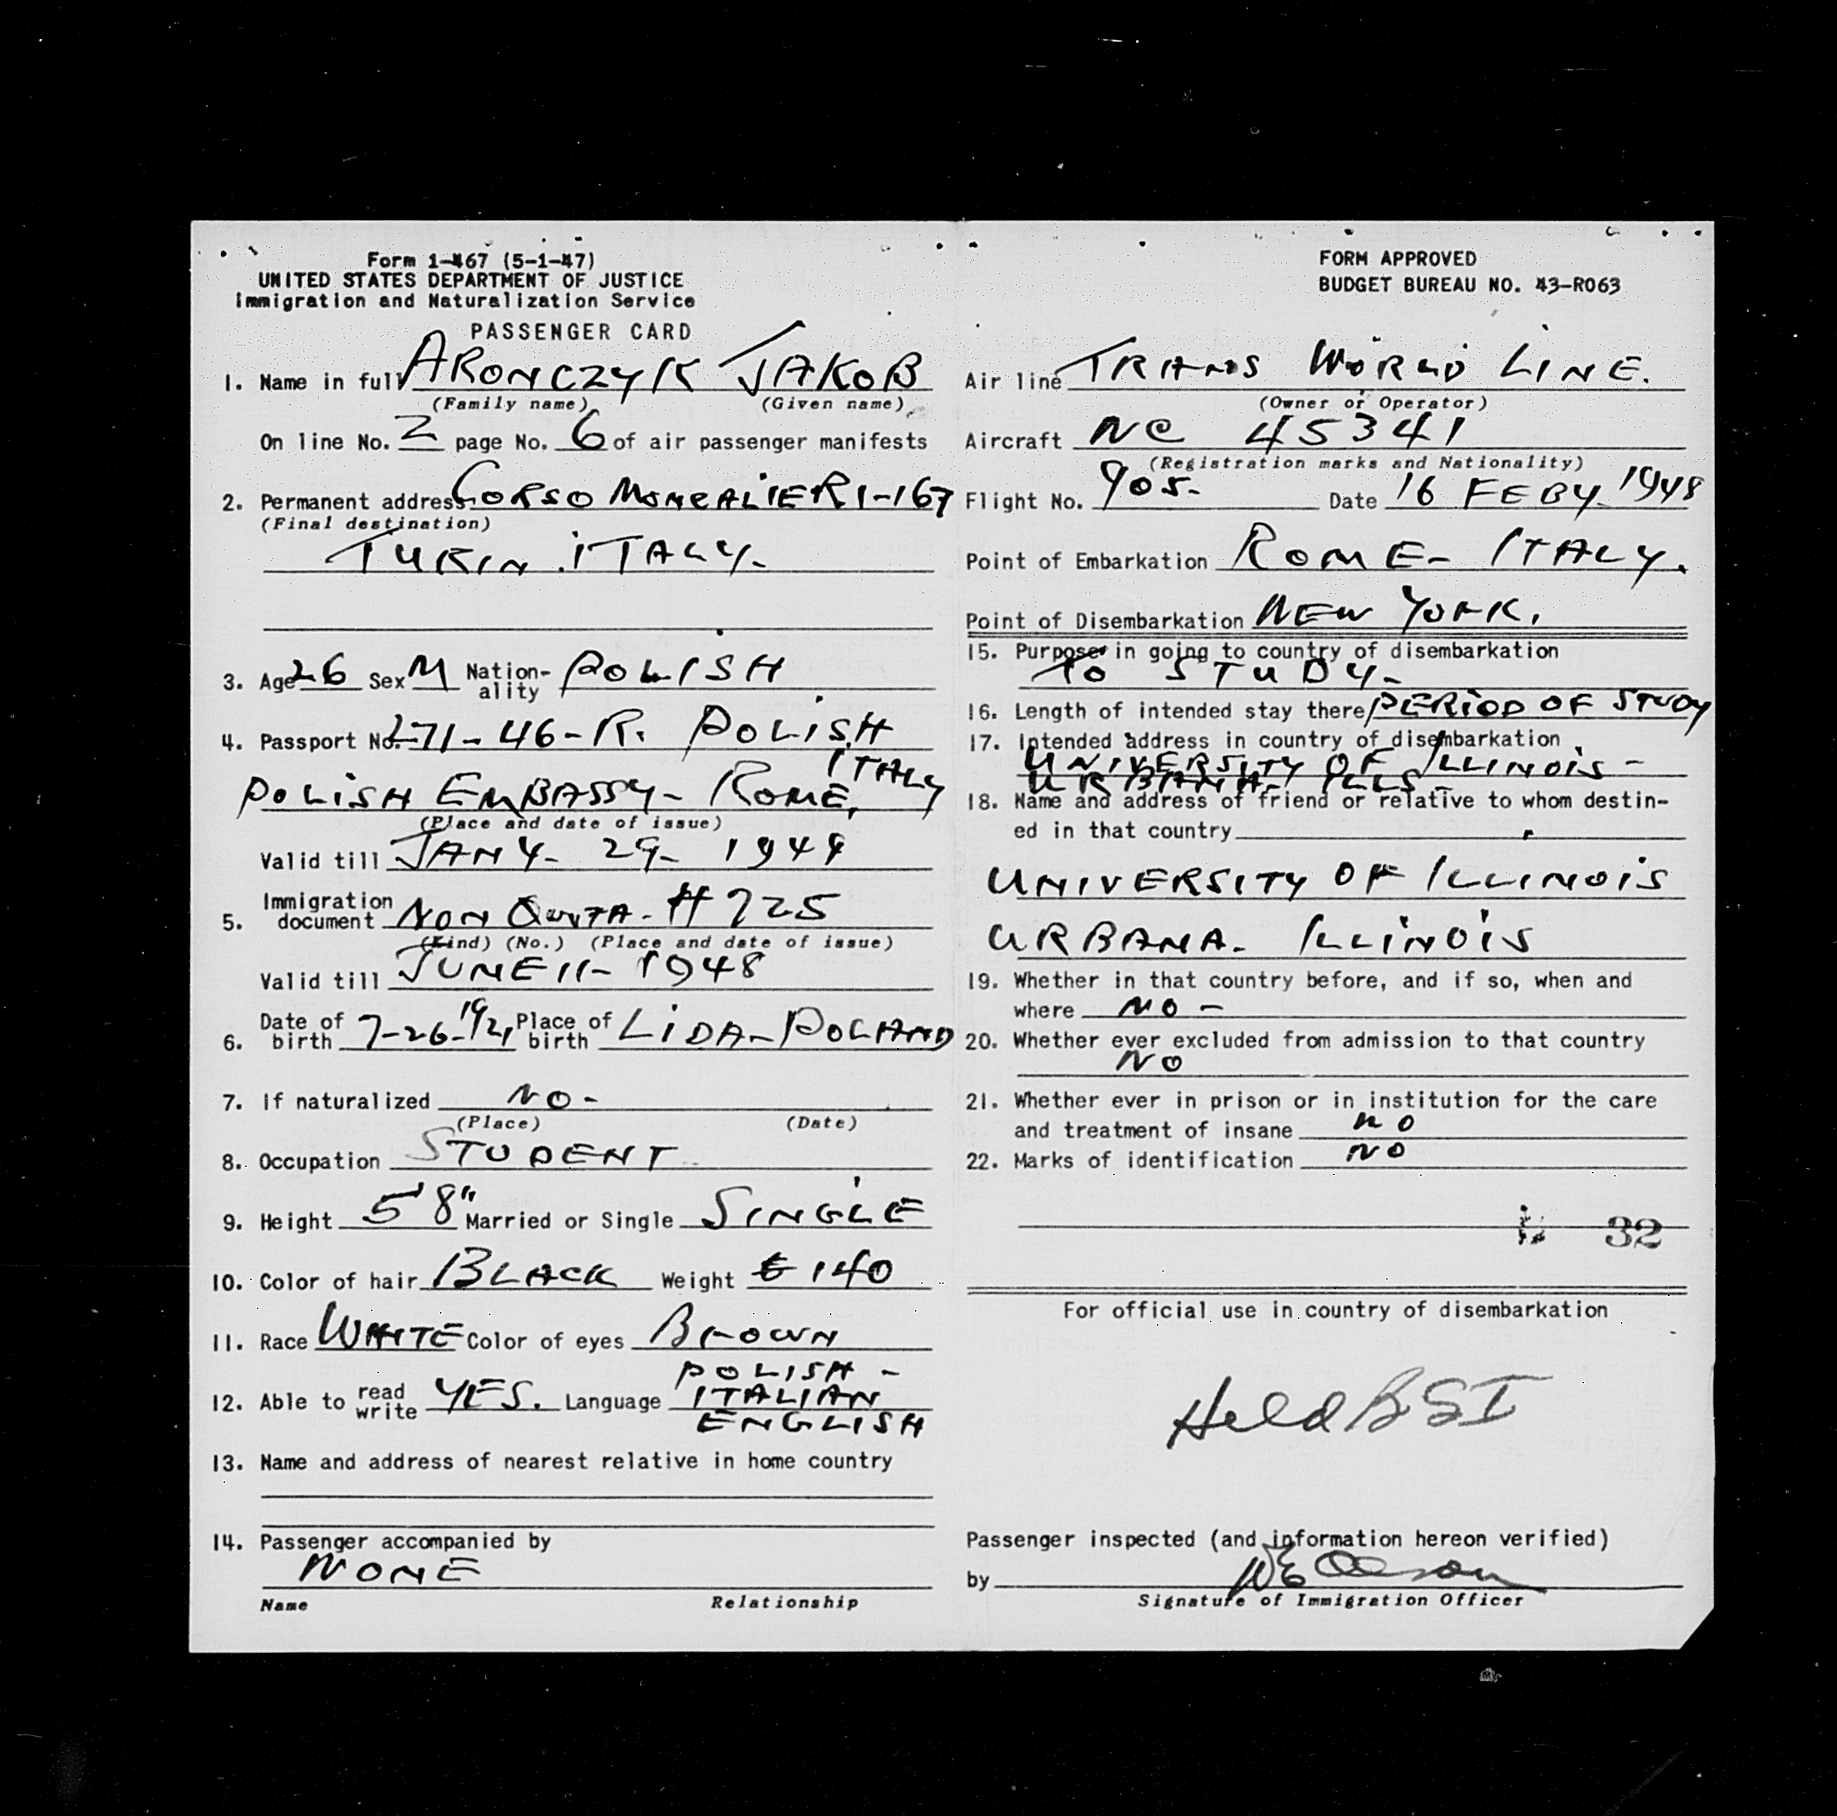 Form 1-467 (5-1-47)
UNITED STATES DEPARTMENT OF JUSTICE
Immigration and Naturalization Service
PASSENGER CARD
1. Name in full ARONCZYK JAKOB
(Family name) (Given name)
On line No. 2 page No. 6 of air passenger manifests
2. Permanent address CORSO MONCALIERI-167
(Final destination)
TURIN. ITALY.
3. Age 26 Sex M Nation-ality POLISH
4. Passport No. 271-46-R. POLISH
POLISH EMBASSY- ROME, ITALY
(Place and date of issue)
Valid till JANY- 29- 1949
5. Immigration document NON QUOTA- # 725
(Kind) (No.) (Place and date of issue)
Valid till JUNE 11- 1948
6. Date of birth 7-26-1921 Place of birth LIDA- POLAND
7. If naturalized NO-
(Place) (Date)
8. Occupation STUDENT
9. Height 5' 8" Married or Single SINGLE
10. Color of hair BLACK Weight 140
11. Race WHITE Color of eyes BROWN
12. Able to read write YES. Language POLISH - ITALIAN ENGLISH
13. Name and address of nearest relative in home country
14. Passenger accompanied by
NONE
Name Relationship
FORM APPROVED
BUDGET BUREAU NO. 43-R063
Air line TRANS WORLD LINE.
(Owner or Operator)
Aircraft NC 45341
(Registration marks and Nationality)
Flight No. 905- Date 16 FEBY 1948
Point of Embarkation ROME- ITALY.
Point of Disembarkation NEW YORK.
15. Purpose in going to country of disembarkation
TO STUDY-
16. Length of intended stay there PERIOD OF STUDY
17. Intended address in country of disembarkation
UNIVERSITY OF ILLINOIS-
URBANA- ILLS-
18. Name and address of friend or relative to whom destin-
ed in that country
UNIVERSITY OF ILLINOIS
URBANA- ILLINOIS
19. Whether in that country before, and if so, when and
where NO -
20. Whether ever excluded from admission to that country
NO
21. Whether ever in prison or in institution for the care
and treatment of insane NO
22. Marks of identification NO
32
For official use in country of disembarkation
Held BSI
Passenger inspected (and information hereon verified)
by WE Olson
Signature of Immigration Officer